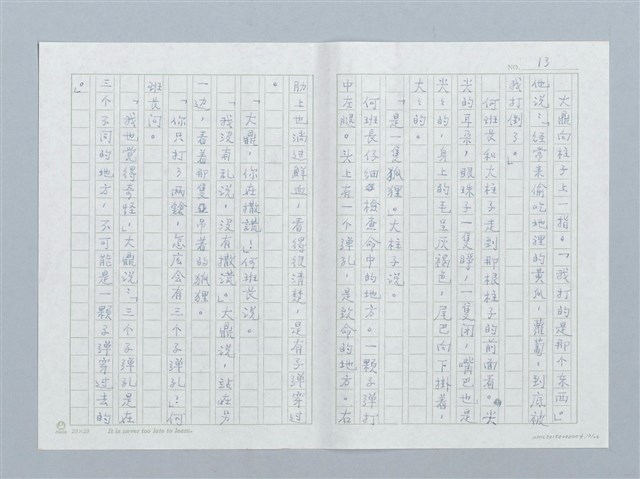 NO. 13
大鼎向柱子上一指。「我打的是那个東西。」
他說：「經常来偷吃地裡的黄瓜，蘿蔔，到底被
我打倒了。」
何班長和大柱子走到那根柱子的前面看。尖
尖的耳朵，眼珠子一隻睜，一隻闭，嘴巴也是
尖尖的，身上的毛呈灰褐色，尾巴向下掛着，
大大的。
「是一隻狐狸。」大柱子说。
何班長仔細檢查命中的地方。一颗子弹打
中左腿。头上有一个弹孔，是致命的地方。右
肋上也淌过鮮血，看得很清楚，是有子弹穿过
。
「大鼎，你在撒謊！」何班長说。
「我没有乱说，没有撒謊。」大鼎说，站在另
一边，看着那隻吊著的狐狸。
「你只打了两鎗，怎庅会有三个子弹孔？」何
班長问。
「我也覚得奇怪，」大鼎说：「三个子弹孔是在
三个不同的地方，不可能是一颗子弹穿过去的
。」
It is never too late to learn.